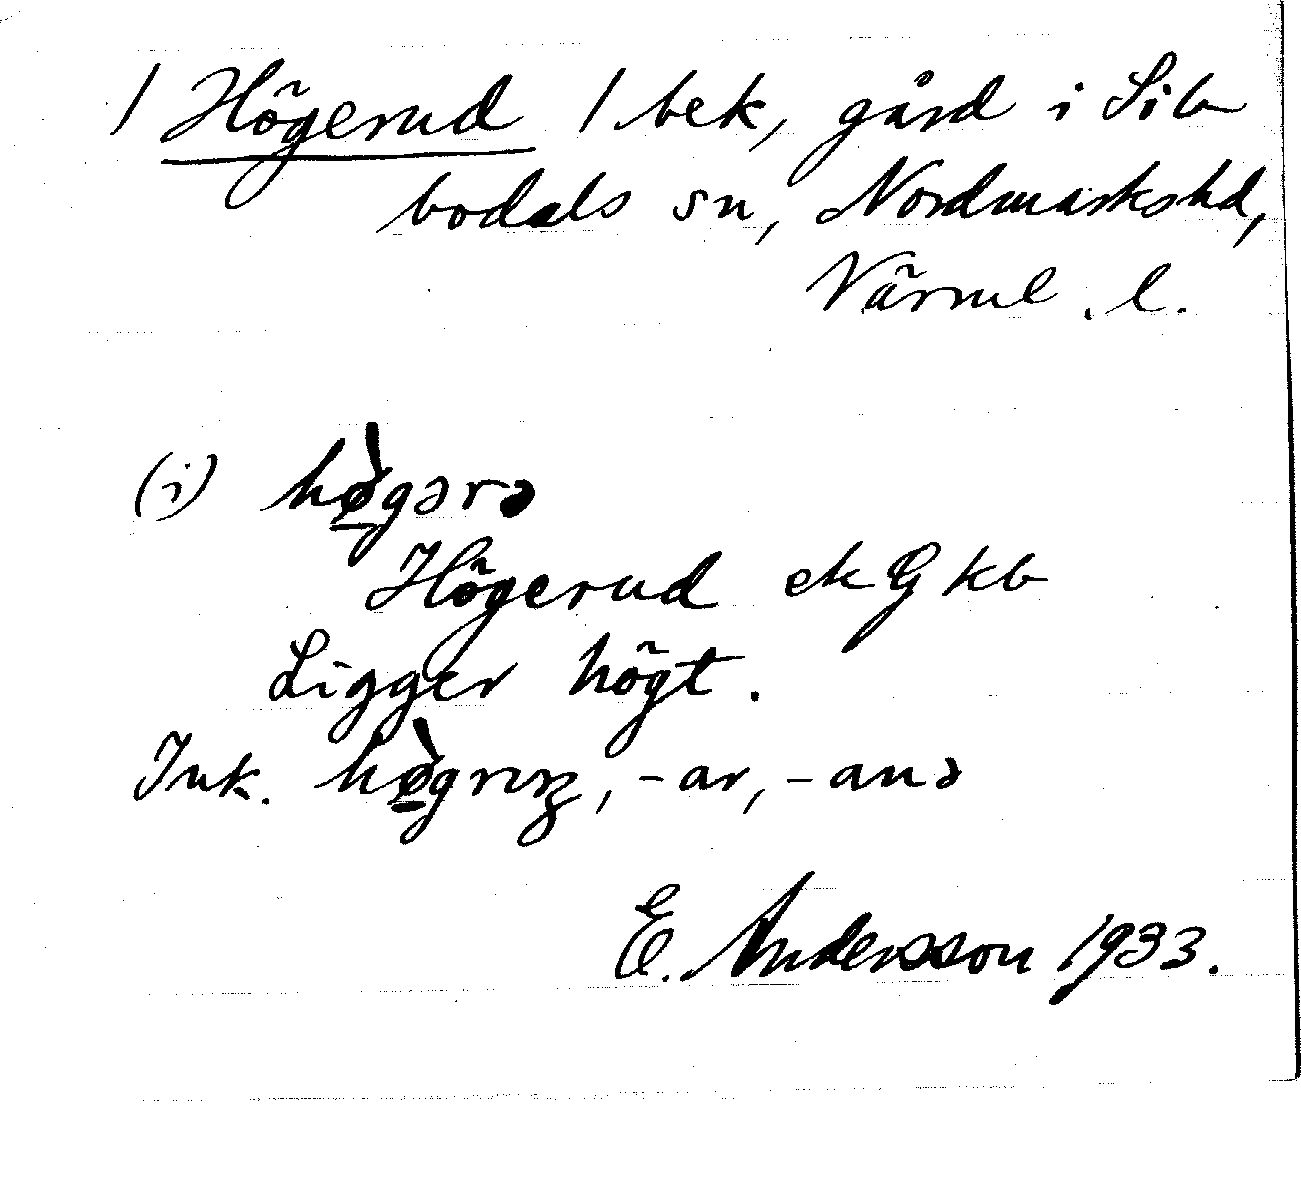 / Högerud / bek, gård i Sil-
bodals sn, Nordmarkshd,
Värml. l.
(i) hø̀gərə
Högerud ek G kb
Ligger högt.
Ink. hø̀grɪŋ, -ar, -anə
E. Andersson 1933.